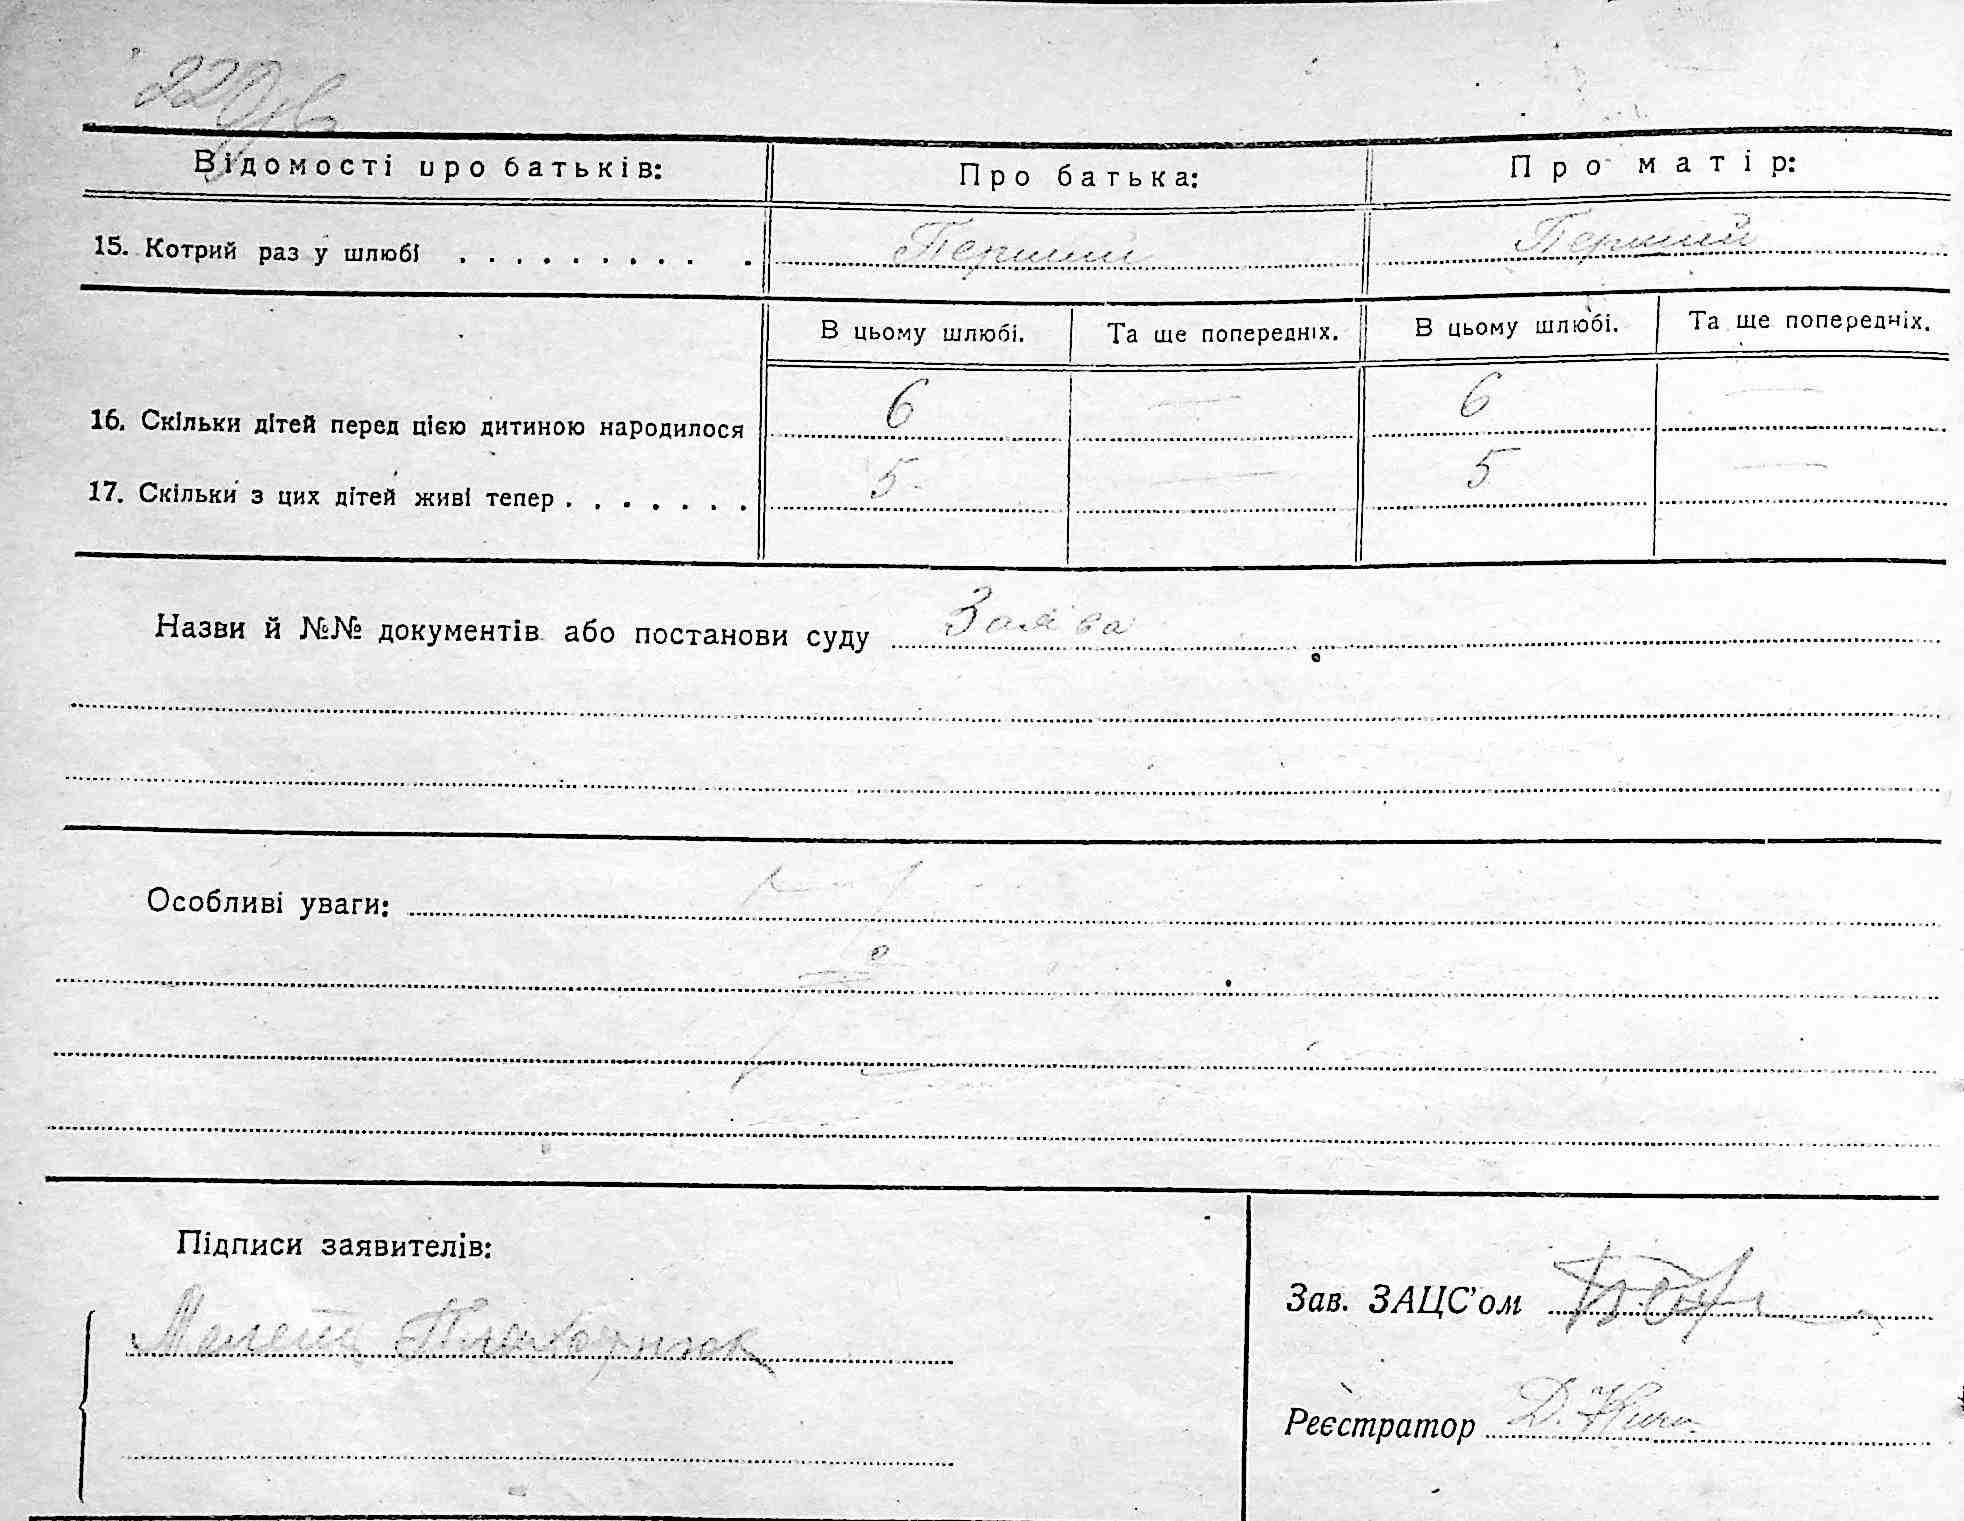 Відомості про батьків: Про батька: Про матір:
15. Котрий раз у шлюбі . . . . . . . . . . Перший Перший
В цьому шлюбі. Та ще попередніх. В цьому шлюбі. Та ще попередніх.
16. Скільки дітей перед цією дитиною народилося 6 — 6 —
17. Скільки з цих дітей живі тепер . . . . . . . 5 — 5 —
Назви й №№ документів або постанови суду Заява
Особливі уваги:
Підписи заявителів:
Зав. ЗАЦС'ом
Реєстратор Д.